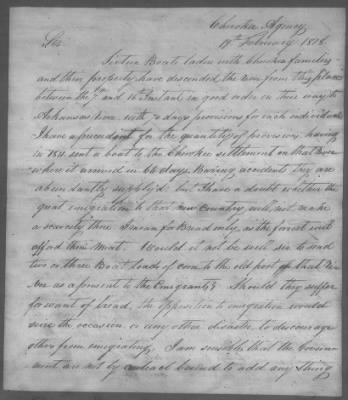 Cherokee Agency
19th February 1818
Sir
Sixteen Boats laden with Cherokee families
and their property have descended the river from this place
between the 7th and 16th Instant in good order on their way to
Arkansas river with 70 days provisions for each individual
I have a precedent for the quantity of provision, having
in 1811 sent a boat to the Cherokee settlement on that river
where it arrived in 66 days. Baring accident they are
abundantly supply'd but I have a doubt whether the
great emigration to that new Country, will not make
a scarcity there I mean for Bread only, as the forest will
afford them Meat. Would it not be well sir to send
two or three Boat loads of corn to the old post of that
River as a present to the Emigrants? Should they suffer
for want of bread, the opposition to emigration would
seize the occasion or any other disaster to discourage
others from emigrating. I am sensible that the Govern
ment are not by contract bound to add any thing